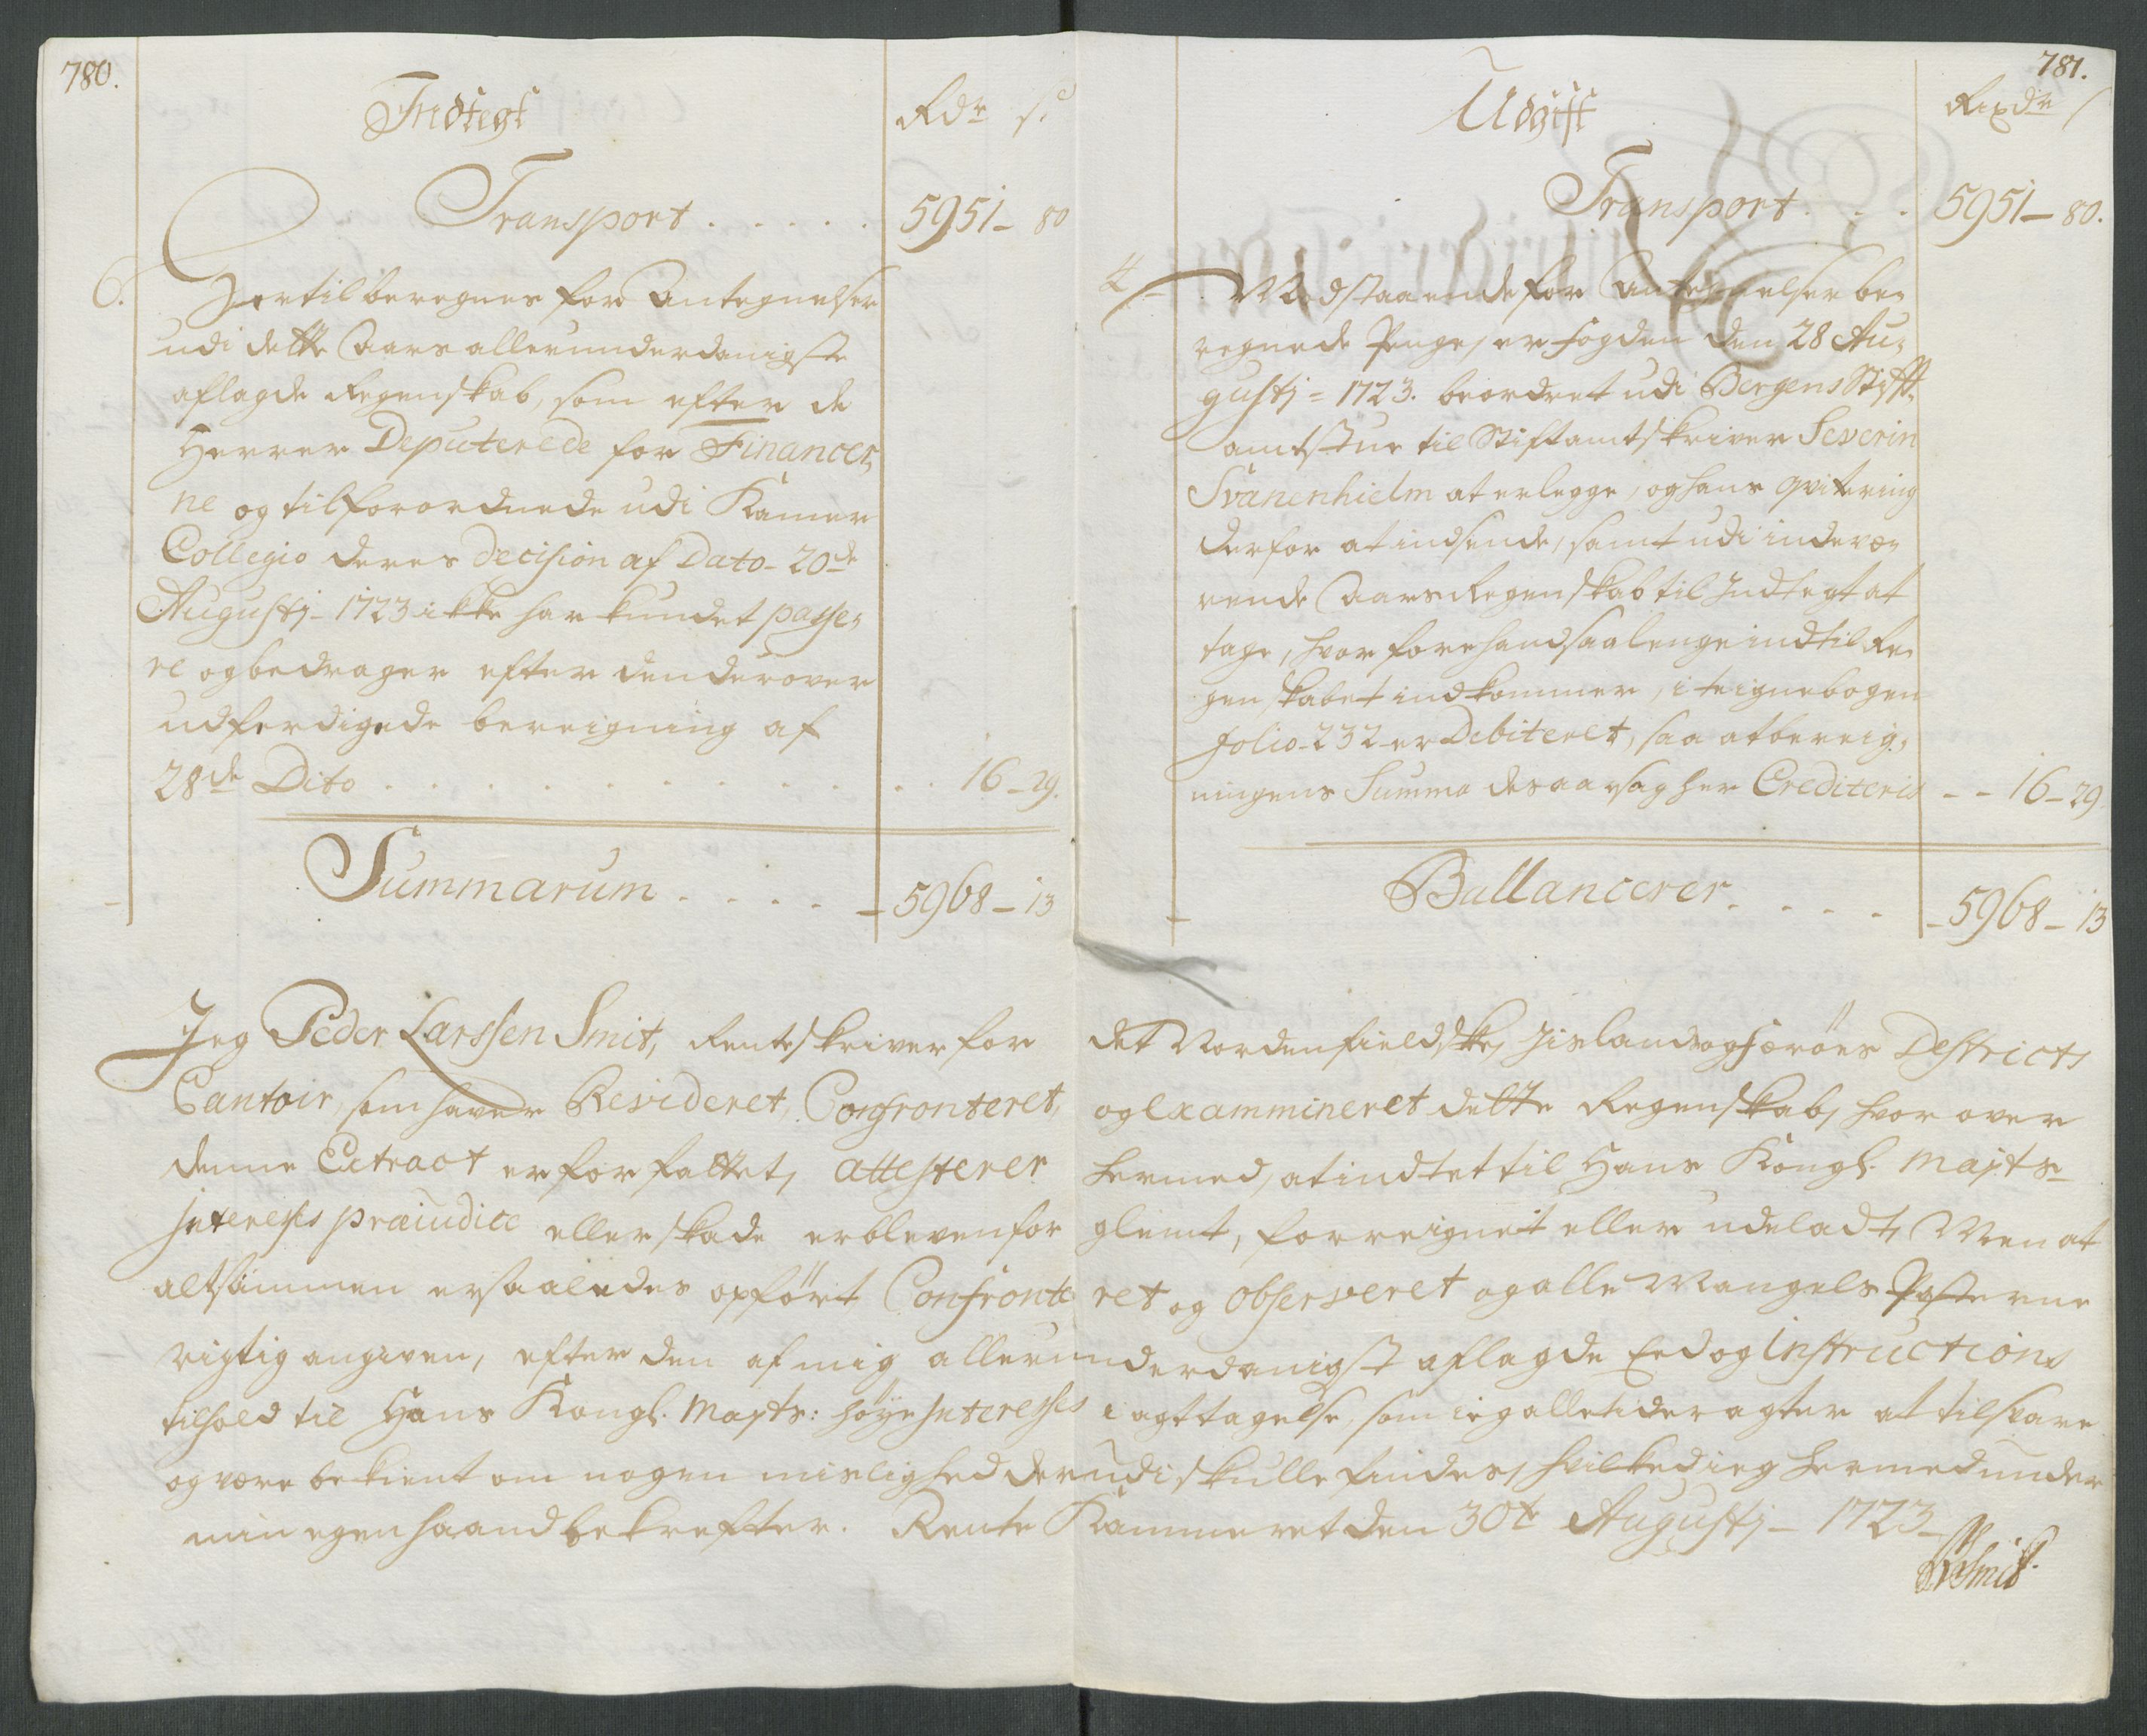 780.
Indtegt
Rdr s
Transport . . . . . 5951 - 80
6. Hertil beregnes for Antegnelser
udi dette Aars allerunderdanigste
aflagde Regenskab, som efter de
Herrer Deputerede for Financer,
ne og tilforordnede udi Kamer
Collegio deres Decision af Dato - 20de
Augustj - 1723 ikke har kundet passe,
re og bedrager efter den derover
udferdigede bereigning af
28de Dito . . . . . . . . . . . 16 - 29.
Summarum . . . . - 5968 - 13
781.
Udgift
Rixdr
Transport . . . 5951 - 80.
Modstaaende for Antegnelser be,
regnede Penge, er Fogden den 28 Au,
gustj = 1723. beordret udi Bergens Stifft,
amtstue til Stiftamtskriver Severin
Svanenhielm at erlegge, og hans qvitering
derfor at indsende, samt udi inderæ,
rende Aars Regenskab til Indtegt at
tage, hvorfore hand saalenge indtil Re,
genskabet indkommer, i teignebogen
folio - 232 - er Debiteret, saa at bereig,
ningens Summa desaarsag her Crediteris - - 16 - 29
Ballancerer . . . . - 5968 - 13
Jeg Peder Larssen Smit, Renteskriver for det Nordenfieldske, Iislands og Færöes Destricts
Cantoir, som haver Revideret, Confronteret, og Exammineret dette Regenskab, hvor over
denne Extract er forfattet, attesterer hermed, at indtet til Hans Kongl. Majts
Interesses præiudice eller skade er bleven for glemt, forreignet eller udeladt, Men at
altsammen er saaledes opfört Confronte ret og observeret og alle Mangels Posterne
rigtig angiven, efter den af mig allerunderdanigst aflagde Eed og Instructions
tilhold til Hans Kongl. Majts: höye Interesses i agttagelse, som ieg alletider agter at tilsvare
og være bekient om nogen mislighed derudi skulle findes, hvilked ieg hermed under
min egen haand bekrefter. Rente Kammeret den 30te Augustj - 1723 -
PLSmit